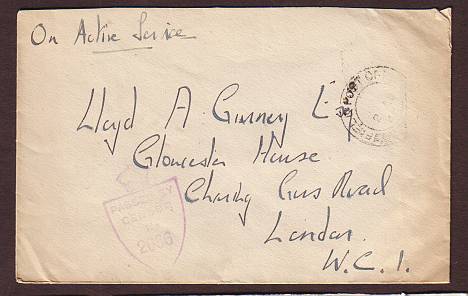 On Active Service
Lloyd A Gurney Esq
Gloucester House
Charing Cross Road
London.
W.C.1.
POST OFFICE
PASSED BY
CENSOR
2000